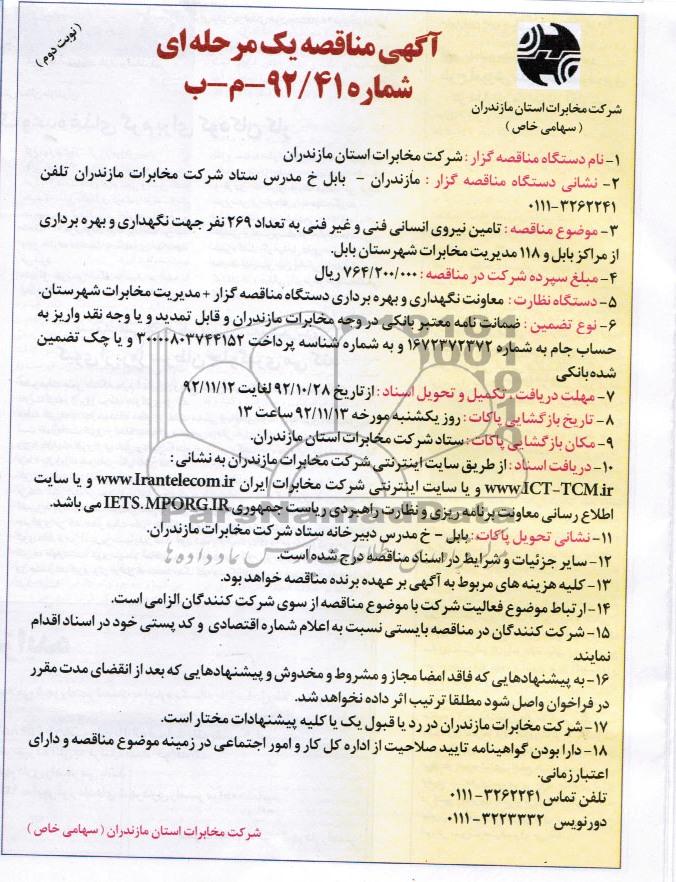 (نوبت دوم)
آگهی مناقصه یک مرحله ای
شماره ۹۲/۴۱-م-ب
شرکت مخابرات استان مازندران
(سهامی خاص)
۱- نام دستگاه مناقصه گزار : شرکت مخابرات استان مازندران
۲- نشانی دستگاه مناقصه گزار : مازندران - بابل خ مدرس ستاد شرکت مخابرات مازندران تلفن
۰۱۱۱-۳۲۶۲۲۴۱
۳- موضوع مناقصه : تامین نیروی انسانی فنی و غیر فنی به تعداد ۲۶۹ نفر جهت نگهداری و بهره برداری
از مراکز بابل و ۱۱۸ مدیریت مخابرات شهرستان بابل.
۴- مبلغ سپرده شرکت در مناقصه : ۷۶۴/۲۰۰/۰۰۰ ریال
۵- دستگاه نظارت : معاونت نگهداری و بهره برداری دستگاه مناقصه گزار + مدیریت مخابرات شهرستان.
۶- نوع تضمین : ضمانت نامه معتبر بانکی در وجه مخابرات مازندران و قابل تمدید و یا وجه نقد واریز به
حساب جام به شماره ۱۶۷۲۳۷۲۳۷۲ و به شماره شناسه پرداخت ۳۰۰۰۰۸۰۳۷۴۴۱۵۲ و یا چک تضمین
شده بانکی
۷- مهلت دریافت ، تکمیل و تحویل اسناد : از تاریخ ۹۲/۱۰/۲۸ لغایت ۹۲/۱۱/۱۲
۸- تاریخ بازگشایی پاکات : روز یکشنبه مورخه ۹۲/۱۱/۱۳ ساعت ۱۳
۹- مکان بازگشایی پاکات : ستاد شرکت مخابرات استان مازندران.
۱۰- دریافت اسناد : از طریق سایت اینترنتی شرکت مخابرات مازندران به نشانی :
www.ICT-TCM.ir و یا سایت اینترنتی شرکت مخابرات ایران www.Irantelecom.ir و یا سایت
اطلاع رسانی معاونت برنامه ریزی و نظارت راهبردی ریاست جمهوری IETS.MPORG.IR می باشد.
۱۱- نشانی تحویل پاکات : بابل - خ مدرس دبیرخانه ستاد شرکت مخابرات مازندران.
۱۲- سایر جزئیات و شرایط در اسناد مناقصه درج شده است.
۱۳- کلیه هزینه های مربوط به آگهی بر عهده برنده مناقصه خواهد بود.
۱۴- ارتباط موضوع فعالیت شرکت با موضوع مناقصه از سوی شرکت کنندگان الزامی است.
۱۵- شرکت کنندگان در مناقصه بایستی نسبت به اعلام شماره اقتصادی و کد پستی خود در اسناد اقدام
نمایند
۱۶- به پیشنهادهایی که فاقد امضا مجاز و مشروط و مخدوش و پیشنهادهایی که بعد از انقضای مدت مقرر
در فراخوان واصل شود مطلقا ترتیب اثر داده نخواهد شد.
۱۷- شرکت مخابرات مازندران در رد یا قبول یک یا کلیه پیشنهادات مختار است.
۱۸- دارا بودن گواهینامه تایید صلاحیت از اداره کل کار و امور اجتماعی در زمینه موضوع مناقصه و دارای
اعتبار زمانی.
تلفن تماس ۰۱۱۱-۳۲۶۲۲۴۱
دورنویس ۰۱۱۱-۳۲۲۳۳۳۲
شرکت مخابرات استان مازندران (سهامی خاص)